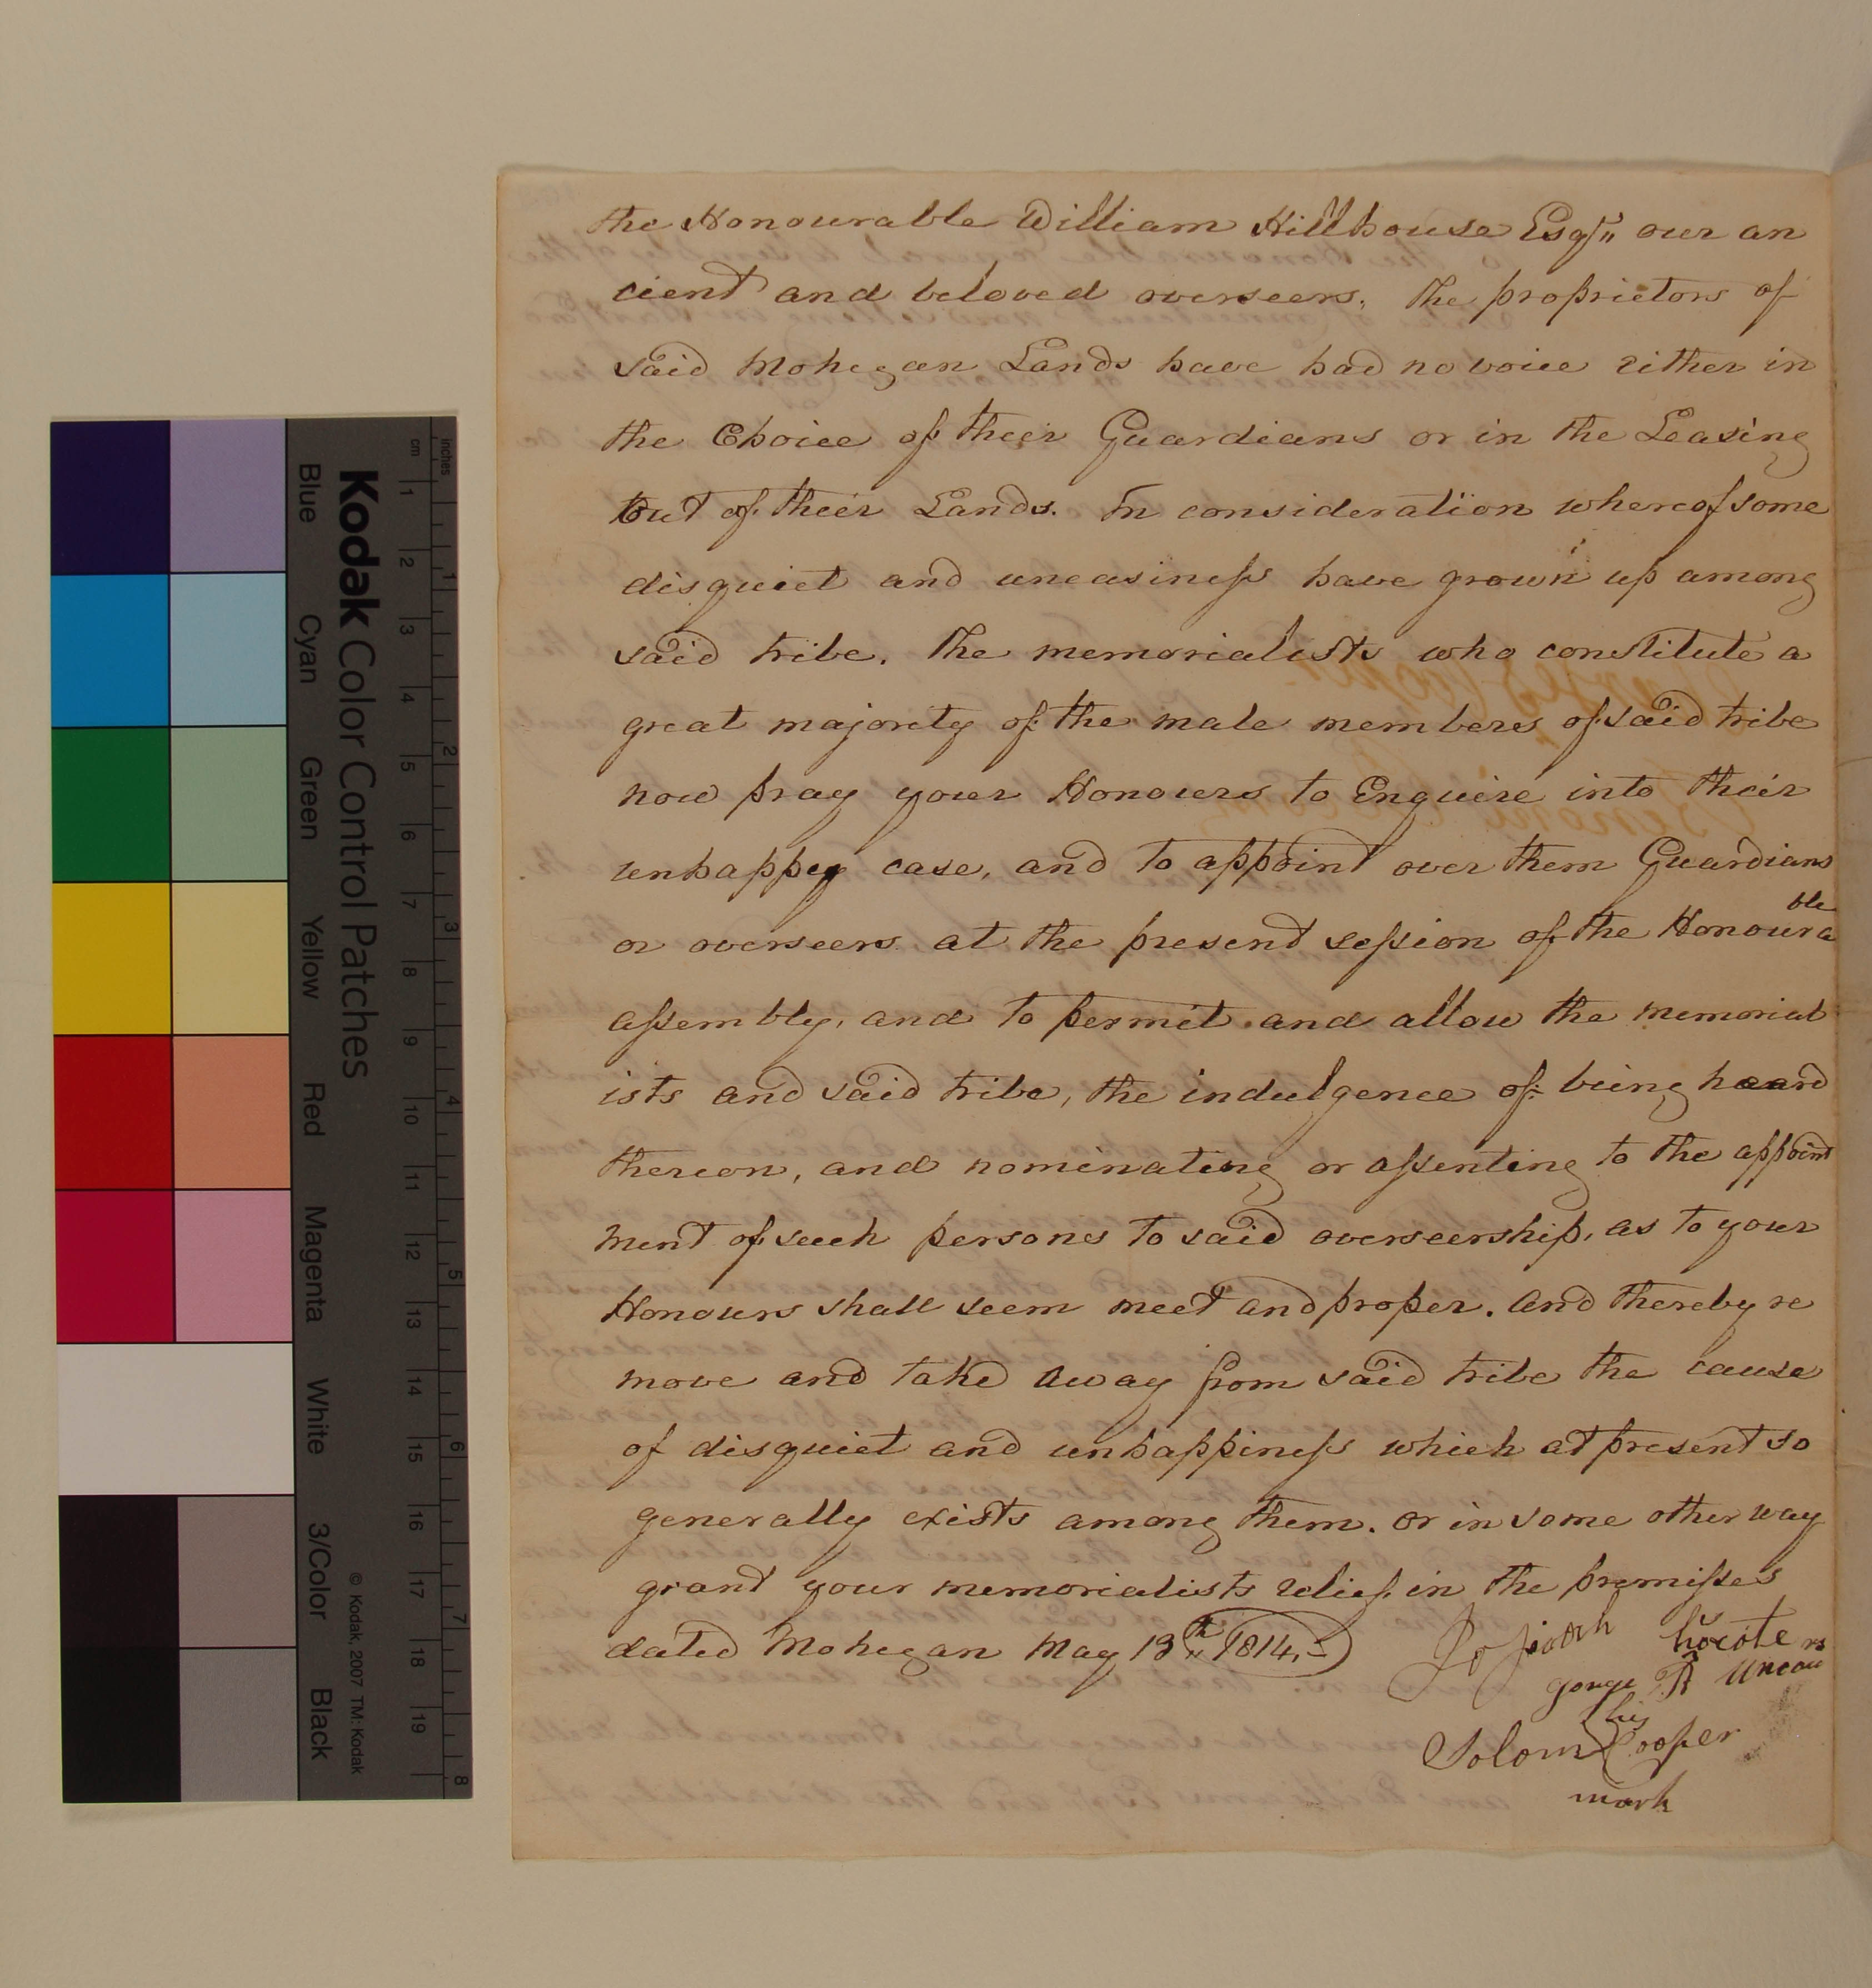 the Honourable William Hillhouse Esqr,, our an
cient and beloved overseers, The proprietors of
said Mohegan Lands have had no voice either in
the Choice of their Guardians or in the Leasing
out of their Lands. In consideration whereof some
disquiet and uneasiness have grown up among
said tribe. The memorialists who constitute a
great majority of the male members of said tribe
now pray your Honours to Enquire into their
unhappy case, and to appoint over them Guardians
or overseers at the present session of the Honourable
assembly, and to permit and allow the memorial
ists and said tribe, the indulgence of being heard
thereon, and nominating or assenting to the appoint
ment of such persons to said overseership, as to your
Honours shall seem meet and proper. And thereby re
move and take away from said tribe the cause
of disquiet and unhappiness which at present so
generally exists among them. or in some other way
grant your memorialists relief in the premisses
dated Mohegan May 13th,, 1814,-
Josiah
George R Uncas
his
Solomn Cooper
mark
Kodak Color Control Patches
Blue Cyan Green Yellow Red Magenta White 3/Color Black
© Kodak, 2007 TM: Kodak
cm 1 2 3 4 5 6 7 8 9 10 11 12 13 14 15 16 17 18 19
inches 1 2 3 4 5 6 7 8